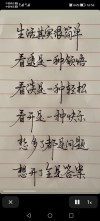 生活其实很简单
看透是一种领悟
看淡是一种轻松
看开是一种快乐
想多了都是问题
想开了全是答案